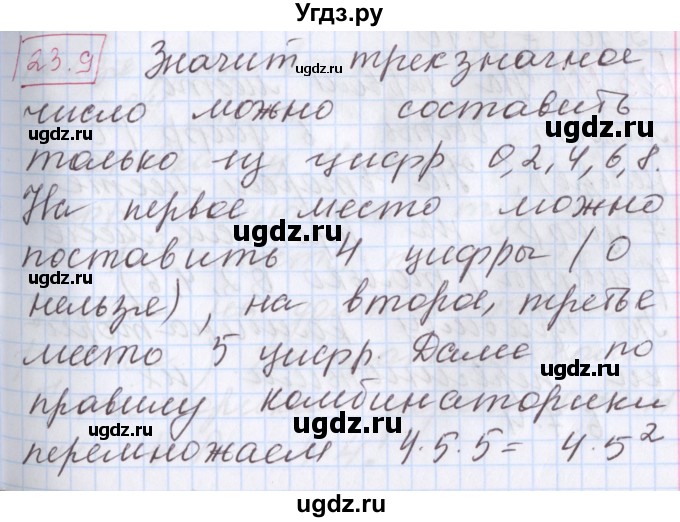 Угдз.ру
23.9 Значит трехзначное
число можно составить
только из цифр 0,2,4,6,8.
На первое место можно
поставить 4 цифры (0
нельзя), на второе, третье
место 5 цифр. Далее по
правилу комбинаторики
перемножаем 4·5·5= 4·5²
ugdz.ru
ugdz.ru
ugdz.ru
ugdz.ru
ugdz.ru
ugdz.ru
ugdz.ru
ugdz.ru
ugdz.ru
ugdz.ru
ugdz.ru
ugdz.ru
Угдз.ру